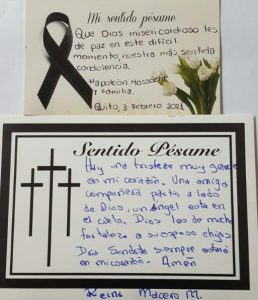 Mi sentido pésame
Que Dios misericordioso les
de paz en este difícil
momento, nuestra más sentida
condolencia.
Napoleón
y familia.
Quito, 3 Febrero 2021
Sentido Pésame
Hay una tristeza muy grande
en mi corazón. Una amiga
compañera partio a lado
de Dios, un Angel esta en
el cielo, Dios les de mucha
fortaleza a su esposo e hijos
Dra siempre estará
en mi corazón. Amén
Macero M.